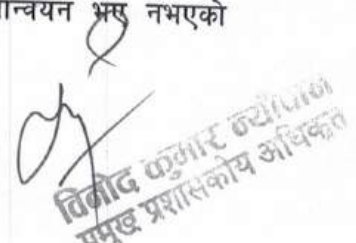 न्वयन भए नभएको
विनोद कुमार न्यौपाने
प्रमुख प्रशासकीय अधिकृत